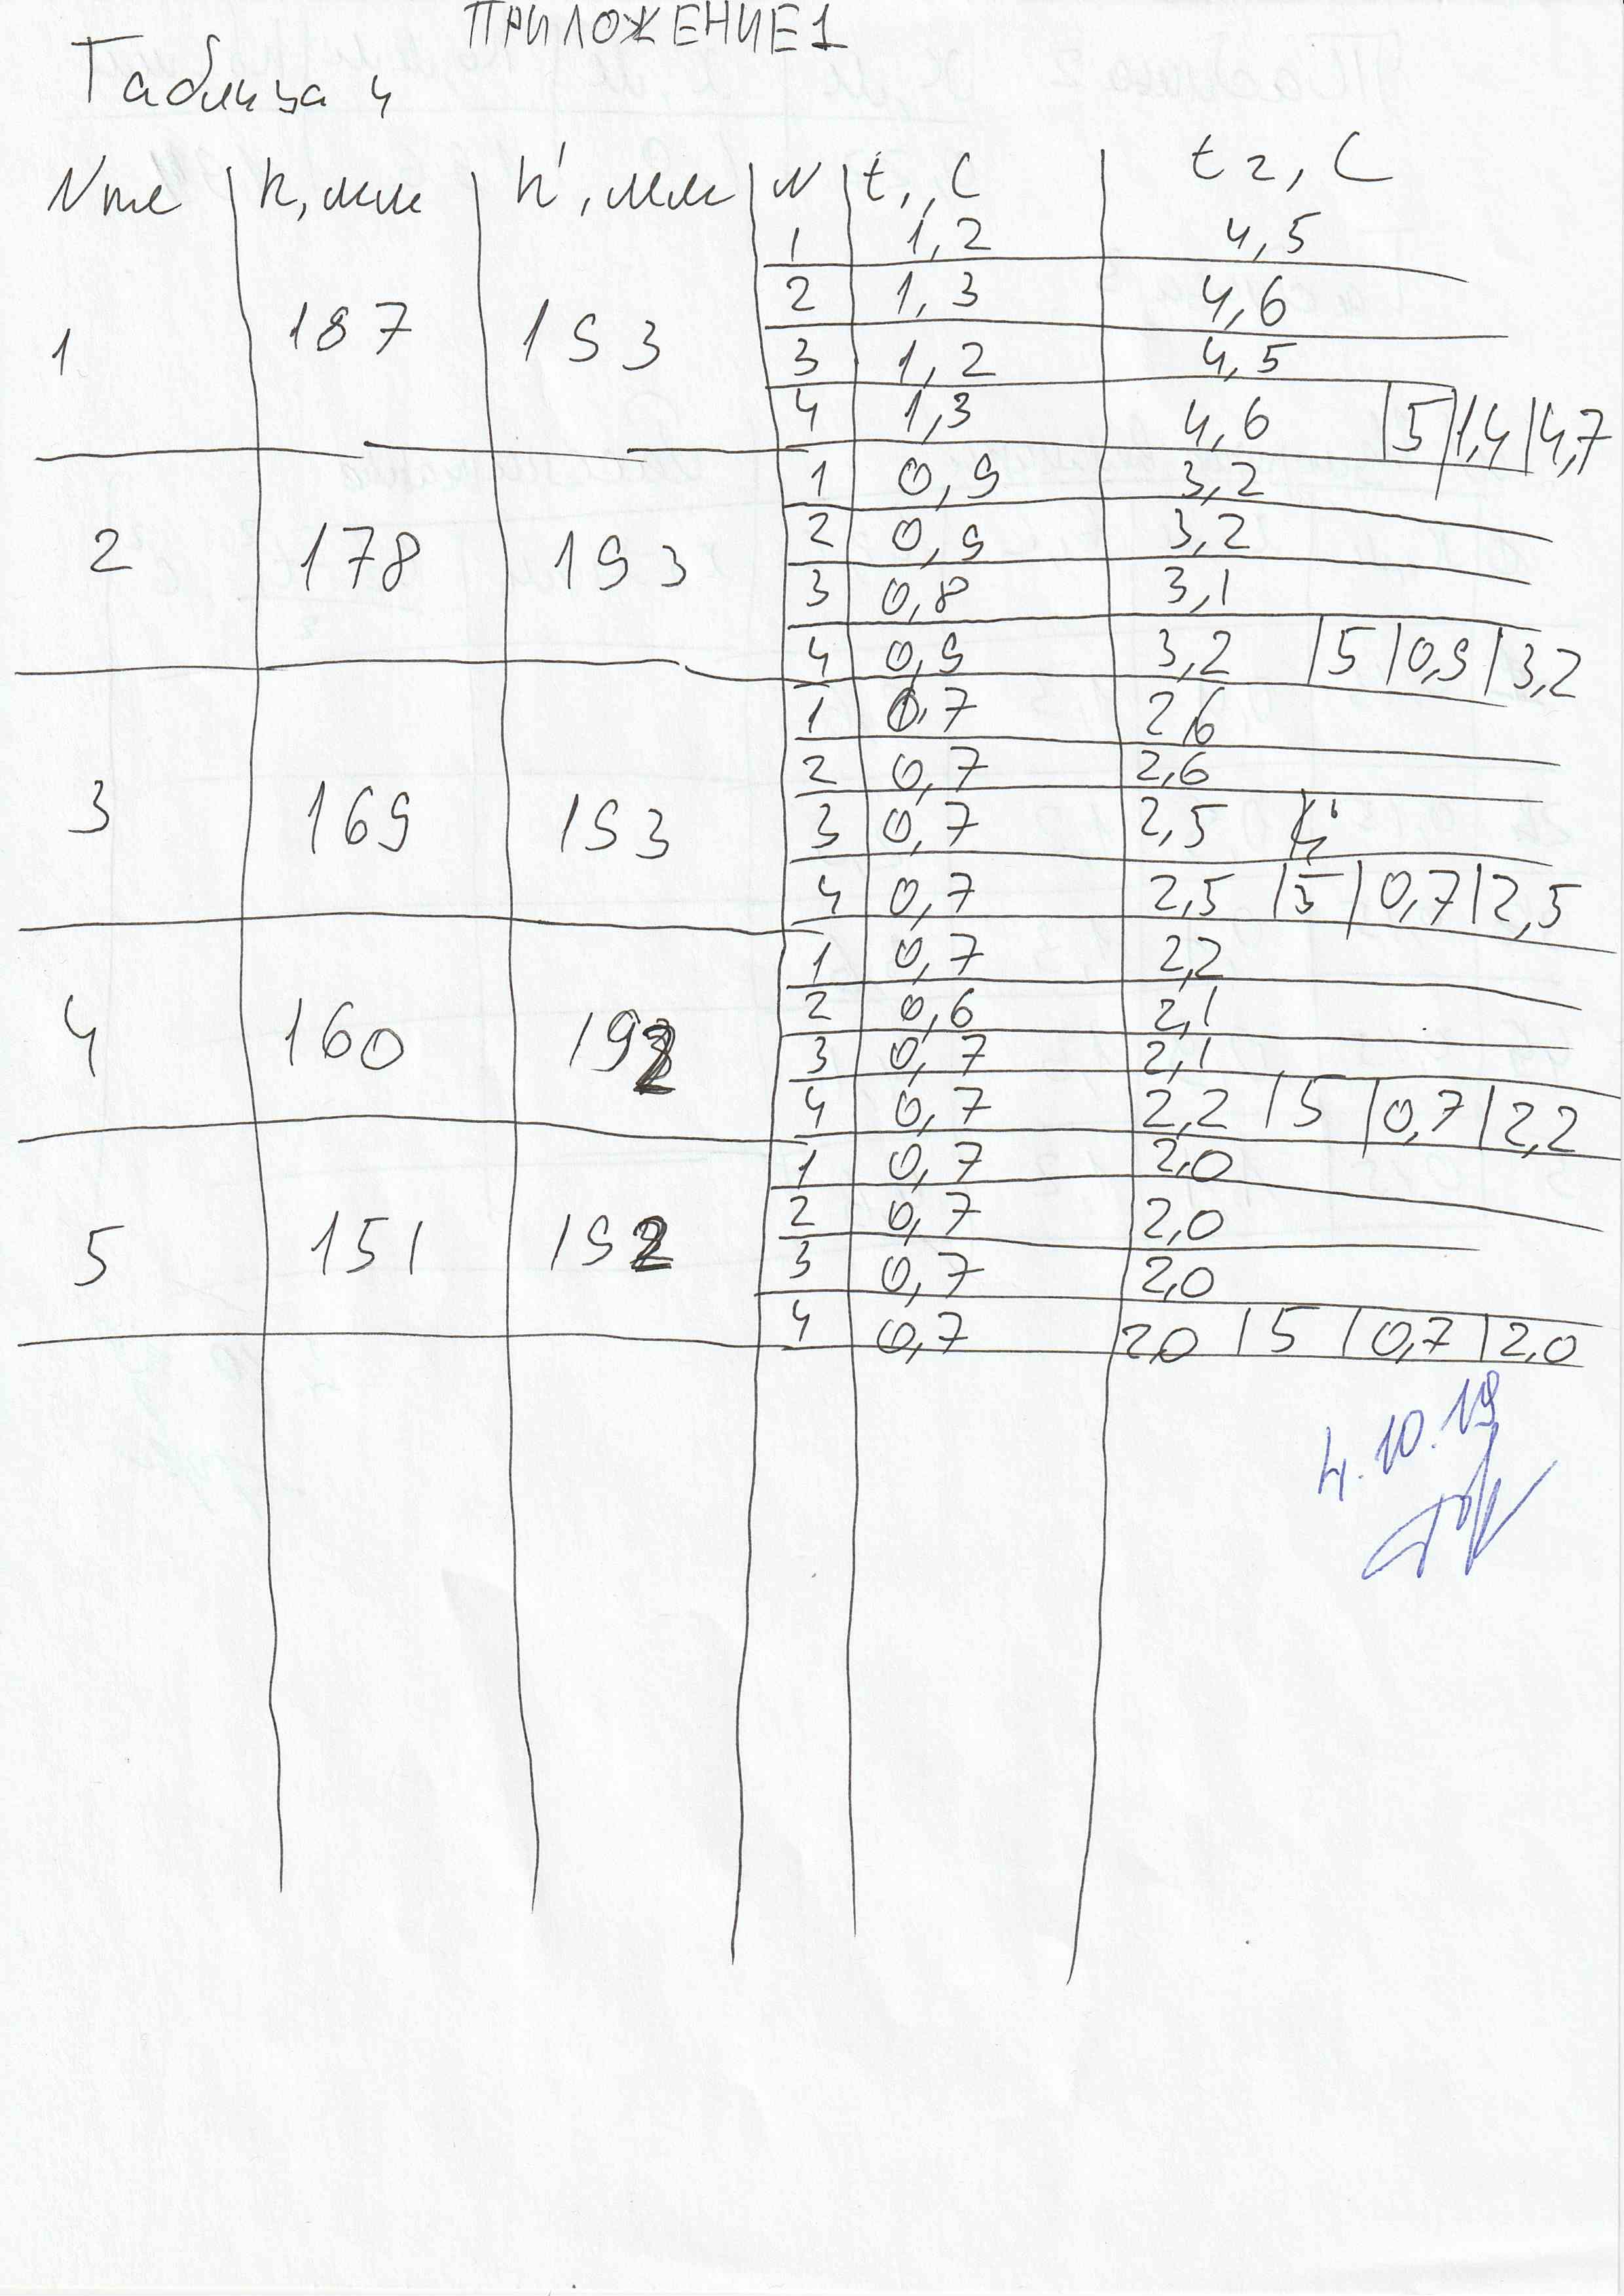 ПРИЛОЖЕНИЕ 1
Таблица 4
Nпл h, мм h', мм N t1, с t2, с
1 187 193 1 1,2 4,5
2 1,3 4,6
3 1,2 4,5
4 1,3 4,6 5 1,4 4,7
2 178 193 1 0,9 3,2
2 0,9 3,2
3 0,8 3,1
4 0,9 3,2 5 0,9 3,2
3 169 193 1 0,7 2,6
2 0,7 2,6
3 0,7 2,5
4 0,7 2,5 5 0,7 2,5
4 160 192 1 0,7 2,2
2 0,6 2,1
3 0,7 2,1
4 0,7 2,2 5 0,7 2,2
5 151 192 1 0,7 2,0
2 0,7 2,0
3 0,7 2,0
4 0,7 2,0 5 0,7 2,0
4.10.19